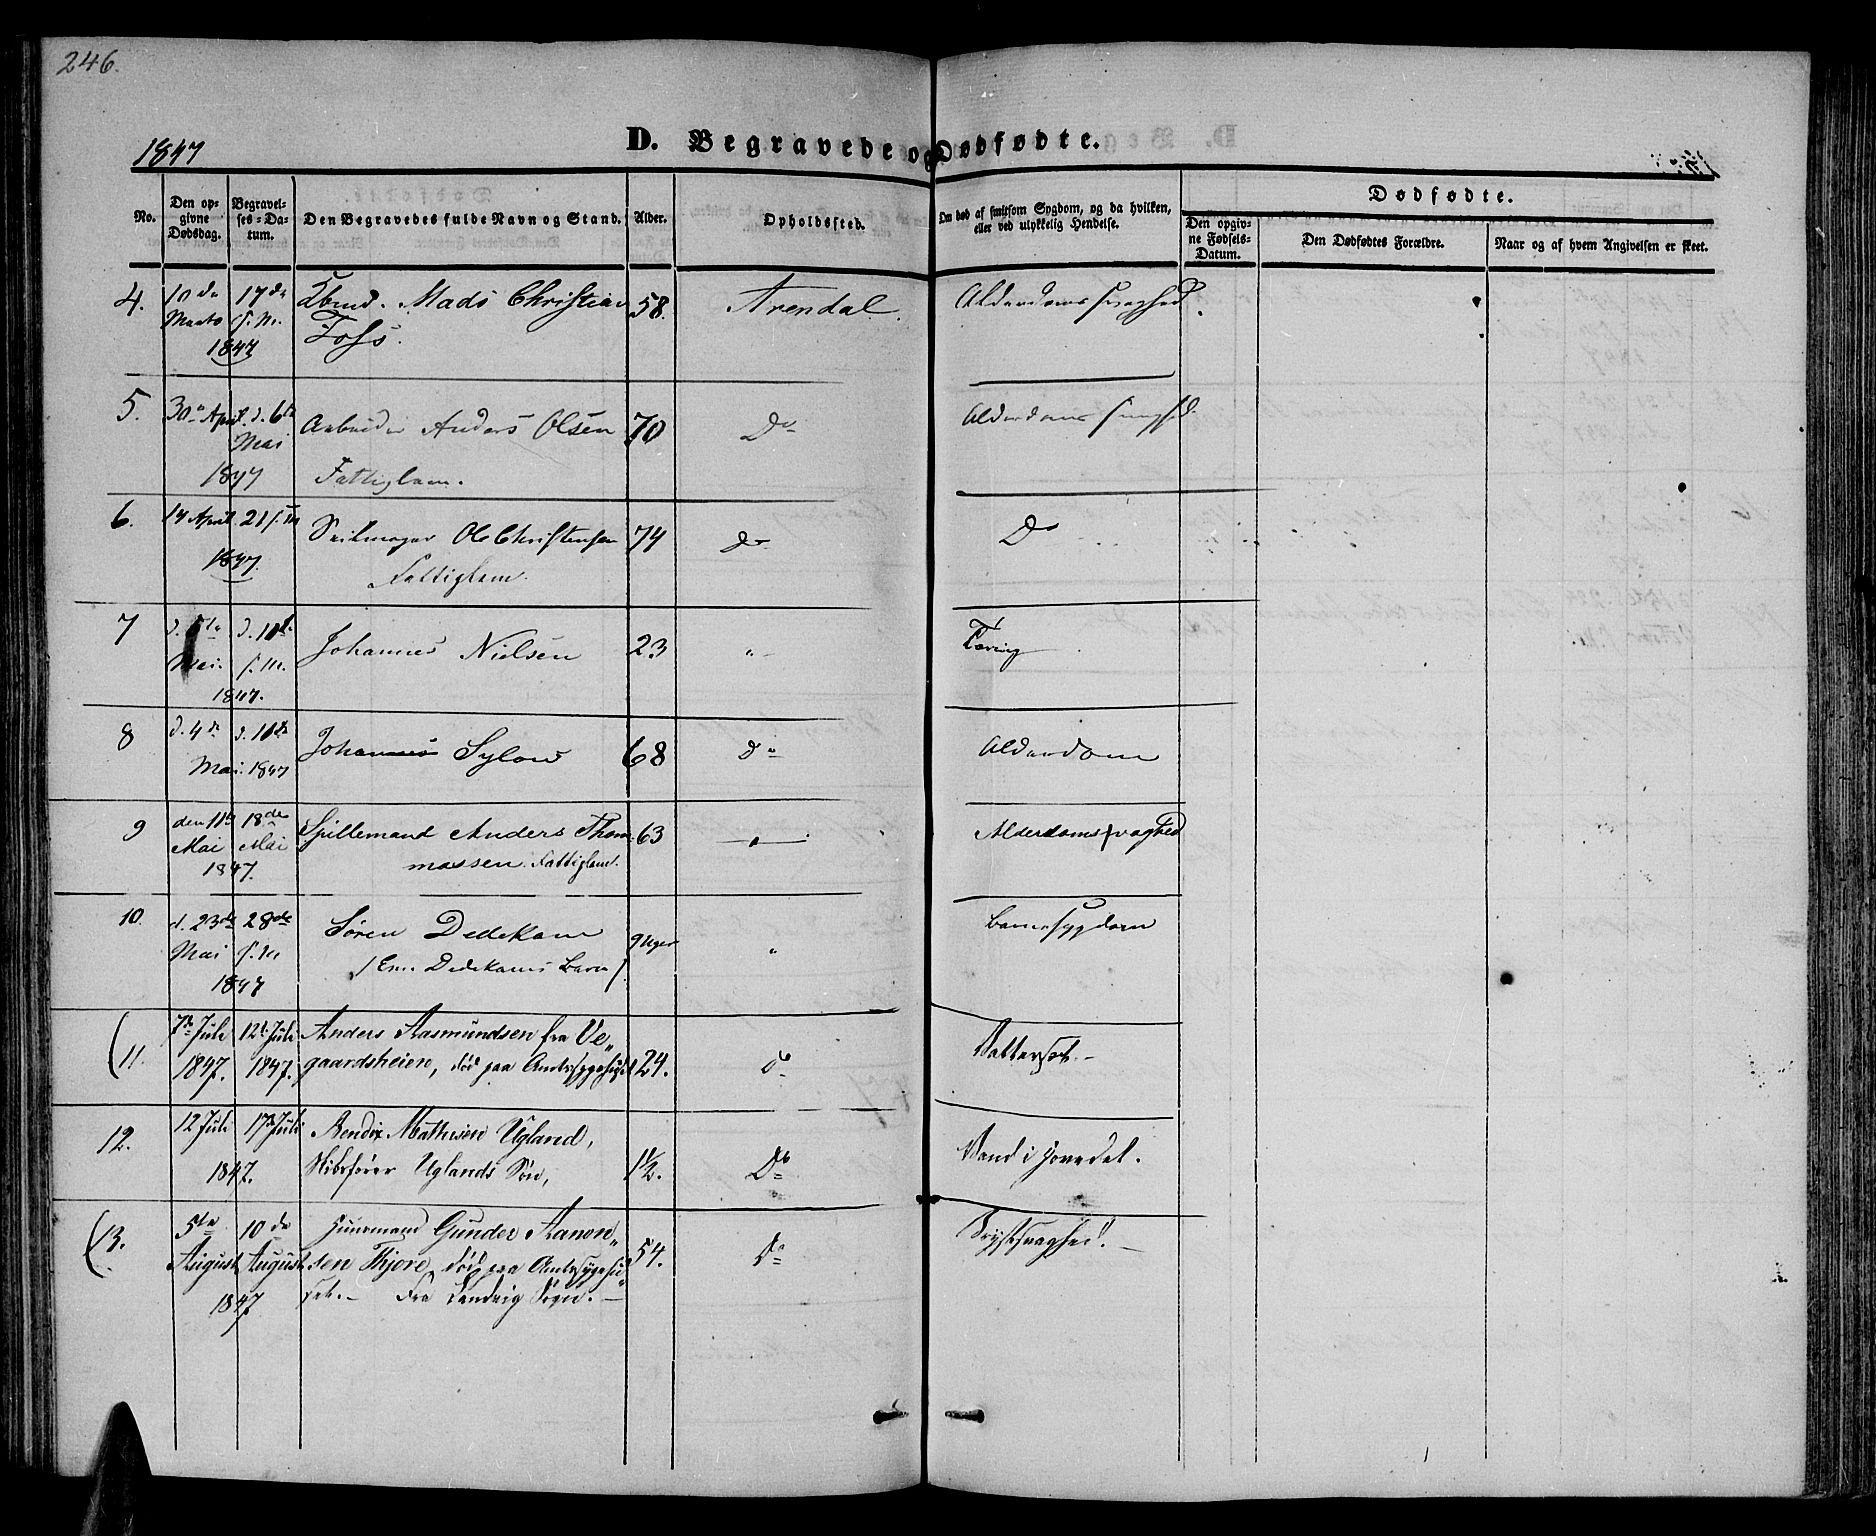 246.
1847
D. Begravede og Dødfødte.
No.
Den opgivne Dødsdag.
Begravelses-Datum.
Den Begravedes fulde Navn og Stand.
Alder.
Opholdssted.
Om død af smitsom Sygdom, og da hvilken, eller ved ulykkelig Hendelse.
Dødfødte.
Den opgivne Fødsels-Datum.
Den Dødfødtes Forældre.
Naar og af hvem Angivelsen er skeet.
4. 10de 17de Mads Christian 58. Arendal. Alderdomssvaghed.
Marts s. M. Foss.
1847
5. 30te April d. 6te Arbeider Anders Olsen 70 Do Alderdomssvaghed.
Mai
1847 Fattiglem.
6. 14 April 21 s. M Seilmager Ole Christensen 74 do Do
1847. Fattiglem.
7 d. 5te d. 11te Johannes Nielsen 23 " Tæring
Mai. s. M.
1847.
8 d. 4de d. 11te Johannes Sylow 68 Do Alderdom
Mai. 1847
9 den 11te 18de Spillemand Anders Thom 63 " Alderdomssvaghed
Mai Mai massen. Fattiglem.
1847.
10. d. 23de 28de Søren Dedekam 9 Uger " Barnesygdom
Mai s. M. Dedekams Barn
1847
11. 7de Juli 12te Juli Anders Aasmundsen fra Ve„ 24. do Vattersot.
1847. 1847. gaardsheien, død paa Amtssygehuset
12. 12 Juli 17de Juli Bendix Mathisen Ugland, 1½. Do Vand i Hovedet.
1847. Skibsfører Uglands Søn,
13. 5te 10de Huusmand Gunder Aanon„ 54. Do Brystsvaghed.
August August sen Thjore, død paa Amtssygehu„
1847 set. — Fra Landvig Sogn. —